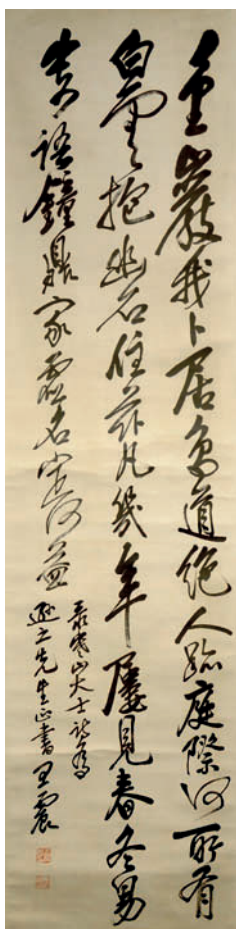 重巖我卜居鳥道絕人跡庭際何所有
白雲抱幽石住茲凡幾年屢見春冬易
寄語鐘鼎家虛名定何益
寒山大士詩為
遜之先生正書 王震